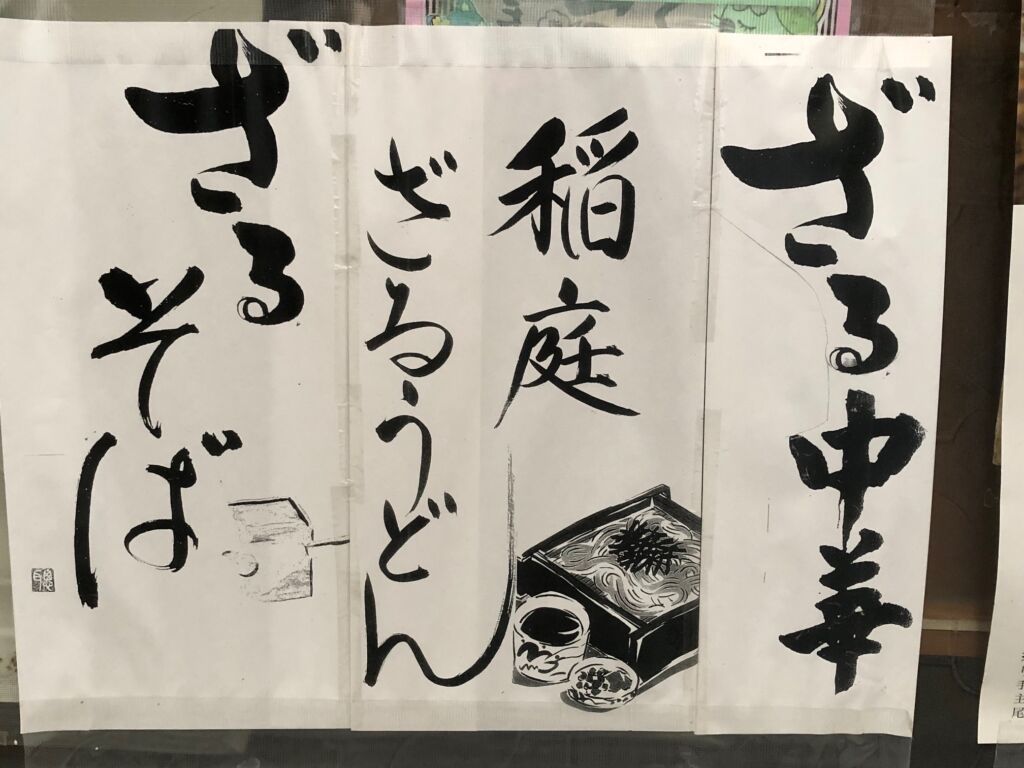 ざる中華
稲庭
ざるうどん
ざるそば